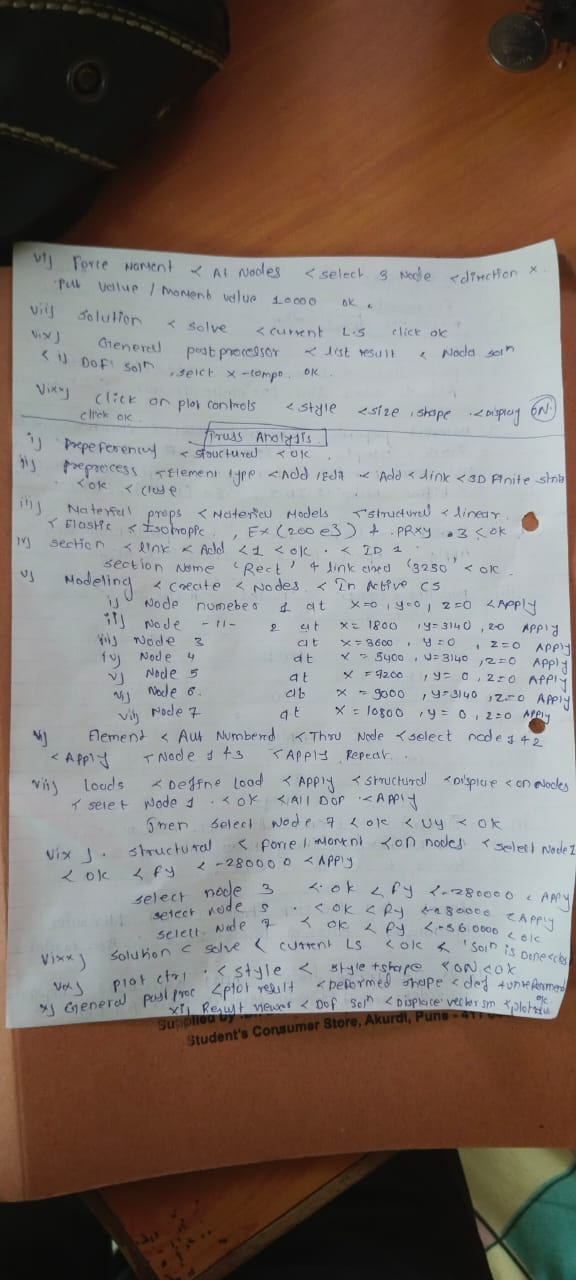 vi) Force Moment < At Nodes < select 3 Node < direction x.
put vallue / moment value 10000 ok.
viii) solution < solve < current L.S click ok
vix) General post processor < list result < Noda soln
< i) DOF soln, selct x-compo. ok.
vixx) Click on plot controls < style < size, shape. < display ON.
click ok.
Truss Analysis
i) Prepeferency < structured < ok.
ii) preprocess < Element type < Add / Edit < Add < link < 3D Finite
< ok < close
iii) Material props < Material Models < structured < linear
< Elastic < Isotropic, Ex (200 e3) & PRxy .3 < ok
iv) section < link < Add < 1 < ok. < ID 1
section Name 'Rect' & link area '3250' < ok.
v) Modeling < create < Nodes < In Active CS
i) Node numeber 1 at x=0, y=0, z=0 < Apply
ii) Node -11- 2 at x= 1800, y= 3140, z0 Apply
iii) Node 3 at x= 3600, y=0, z=0 Apply
iv) Node 4 at x = 5400, y=3140, z=0 Apply
v) Node 5 at x = 7200, y= 0, z=0 Apply
vi) Node 6. at x = 9000, y=3140, z=0 Apply
vii) Node 7 at x = 10800, y= 0, z=0 Apply
vi) Element < Aut Numberd < Thru Node < select node 1 & 2
< Apply < Node 1 & 3 < Apply. Repeat.
vii) Loads < Define Load < Apply < structured < on Nodes
< selet Node 1. < ok < All DOF < Apply
Then select Node 7 < ok < Uy < ok
vix). structural < Force / Moment < on nodes < select Node 1
< ok < Fy < -280000 < Apply
select node 3 < ok < Fy < -280000 < Apply
select node 5. < ok < Fy < Apply
select Node 7 < ok < Fy < -360000 < ok
vixx) solution < solve < current LS < ok < 'soln is Done'
plot ctrl. < style < style + shape < ON < ok
x) General post proc < plot result < Deformed shape < def + undeformed ok.
xi) Result viewer < DOF soln < Displace vector sm
Supplied by
Student's Consumer Store, Akurdi, Pune - 411